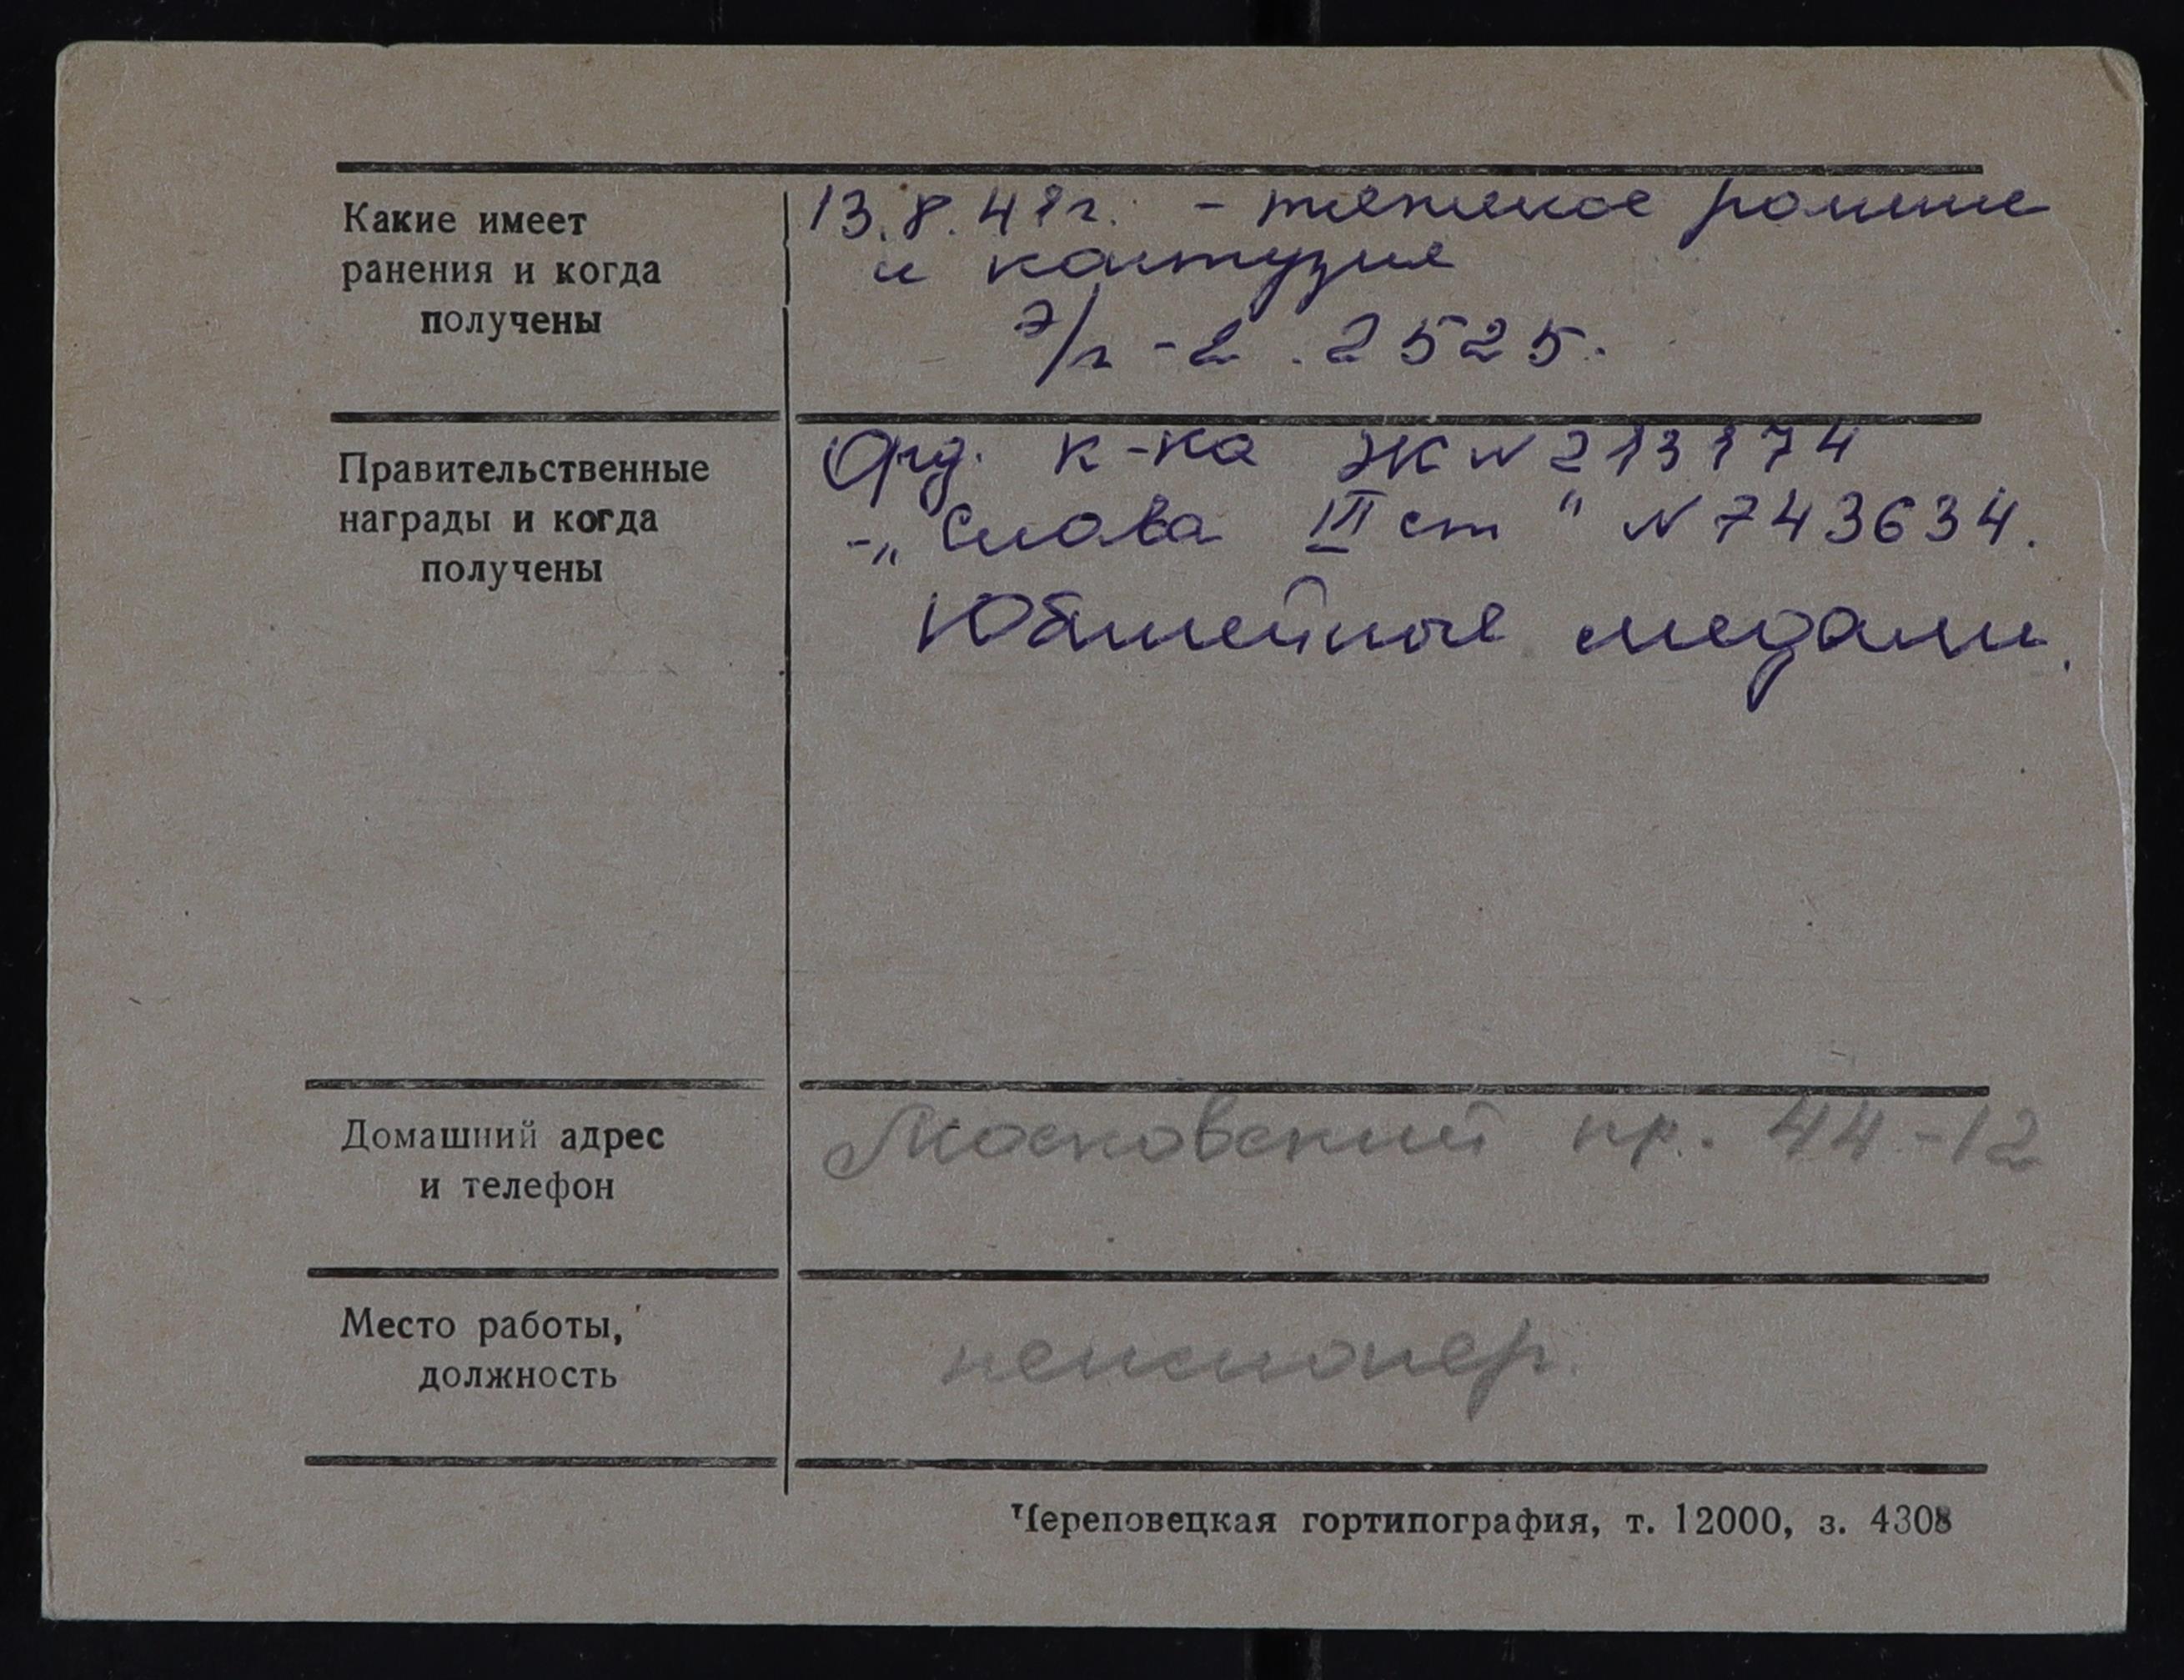 Какие имеет
ранения и когда
получены
13.8.41г. - тяжелое ранение
и контузия
э/г - 2525.
Правительственные
награды и когда
получены
Орд. к-ка ЖК N 213174
-„ Слава III ст " N 743634.
Юбилейные медали.
Домашний адрес
и телефон
Московский пр. 44-12
Место работы,
должность
пенсионер.
Череповецкая гортипография, т. 12000, з. 4308